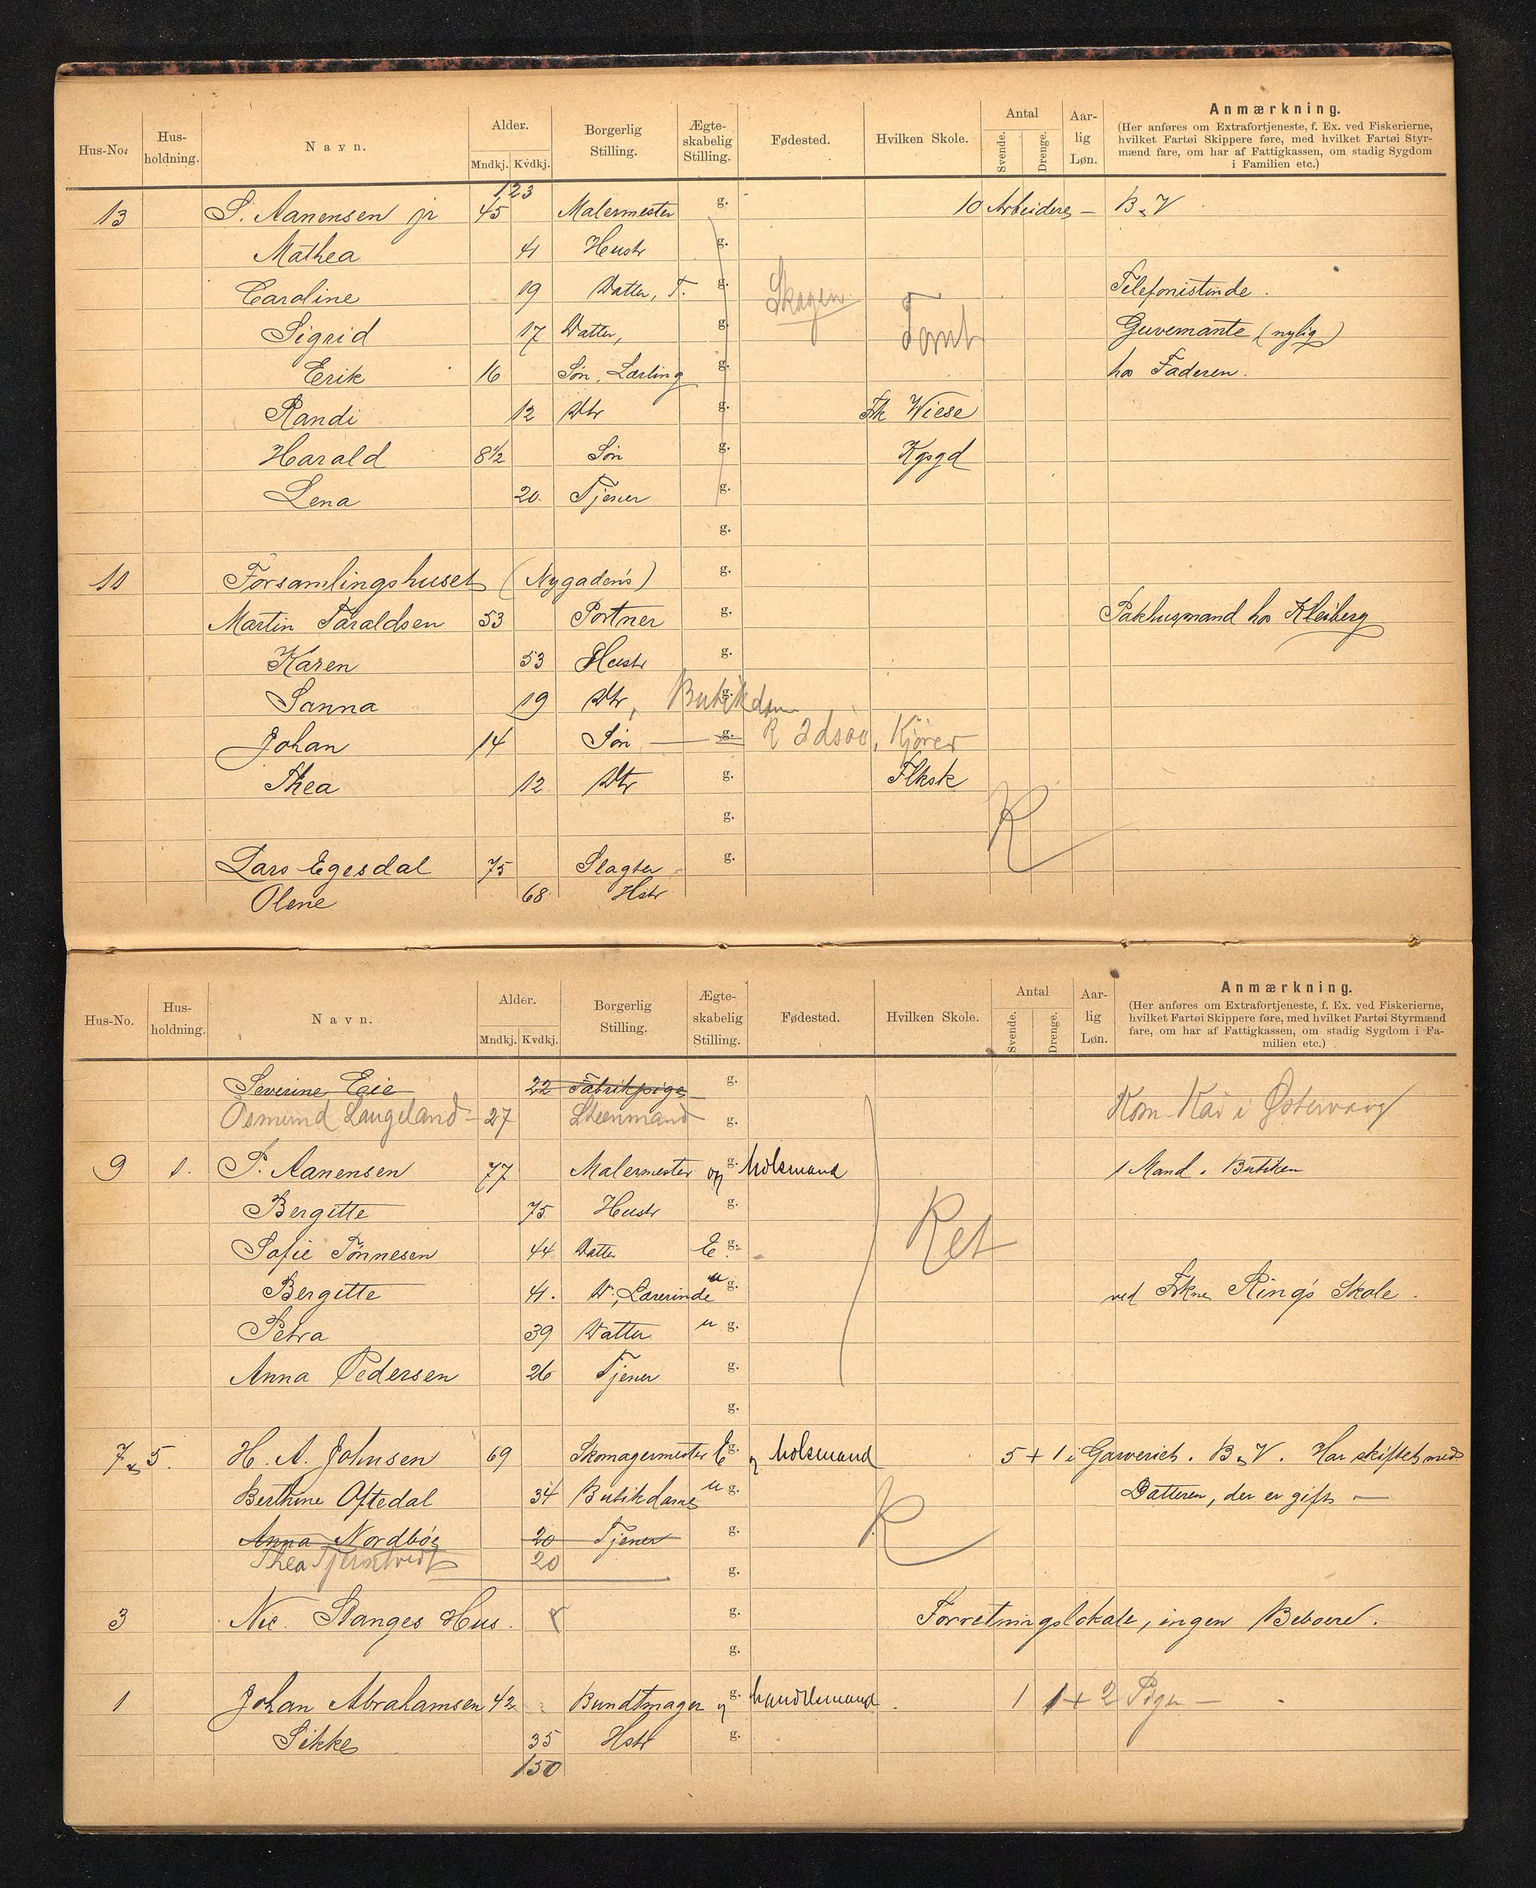 Hus-No. Hus-holdning. Navn. Alder. Mndkj. Kvdkj. Borgerlig Stilling. Ægte-skabelig Stilling. Fødested. Hvilken Skole. Antal Svende. Drenge. Aar-lig Løn. Anmærkning.
(Her anføres om Extrafortjeneste, f. Ex. ved Fiskerierne,
hvilket Fartøi Skippere føre, med hvilket Fartøi Styr-
mænd fare, om har af Fattigkassen, om stadig Sygdom
i Familien etc.)
123
13 S. Aanensen jr 45 Malermester g. 10 Arbeidere — B. V
Mathea 41 Hustr g.
Caroline 19 Datter, T. g. Skagen Telefonistinde.
Sigrid 17 Datter, g. Tomt Guvernante (nylig)
Erik 16 Søn, Lærling g. hos Faderen.
Randi 12 Dtr g. Frk Wiese
Harald 8½ Søn g. Kgsgd
Lena 20 Tjener g.
g.
11 Forsamlingshuset (Nygadens) g.
Martin Taraldsen 53 Portner g. Pakhusmand hos Kleiberg
Karen 53 Hustr g.
Sanna 19 Dtr, Butikdm g.
Johan 14 Søn — g. R Kjører
Thea 12 Dtr g. Flksk
g. R
Lars Egesdal 75 Slagter g.
Olene 68 Hstr
Hus-No. Hus-holdning. Navn. Alder. Mndkj. Kvdkj. Borgerlig Stilling. Ægte-skabelig Stilling. Fødested. Hvilken Skole. Antal Svende. Drenge. Aar-lig Løn. Anmærkning.
(Her anføres om Extrafortjeneste, f. Ex. ved Fiskerierne,
hvilket Fartøi Skippere føre, med hvilket Fartøi Styrmænd
fare, om har af Fattigkassen, om stadig Sygdom i Fa-
milien etc.)
Severine Eie 22 Fabrikpige g.
Osmund Laugeland 27 Steenmand g. Kom. Kai i Østervaag
9 1. P. Aanensen 77 Malermester og g. holsmand 1 Mand i Butiken
Bergitte 75 Hustr g.
Sofie Tønnesen 44 Datter E g. Ret
Bergitte 41. D., Lærerinde u g. ved Frkne Ring's Skole.
Petra 39 Datter u g.
Anna Pedersen 26 Tjener g.
g.
7 & 5. H. A. Johnsen 69 Skomagermester E g. holsmand 5 + 1 i Garveriet. B. V. Har skiftet med
Berthine Oftedal 34 Butikdame u g. Datteren, der er gift —
Anna Nordbø 20 Tjener g. R
Thea 20 g.
3 Nic. Stanges Hus. r g. Forretningslokale, ingen Beboere.
g.
1 Johan Abrahamsen 42 Bundtmager g. handelsmand. 1 1 + 2 Piger —
Sikke 35 Hstr g.
150